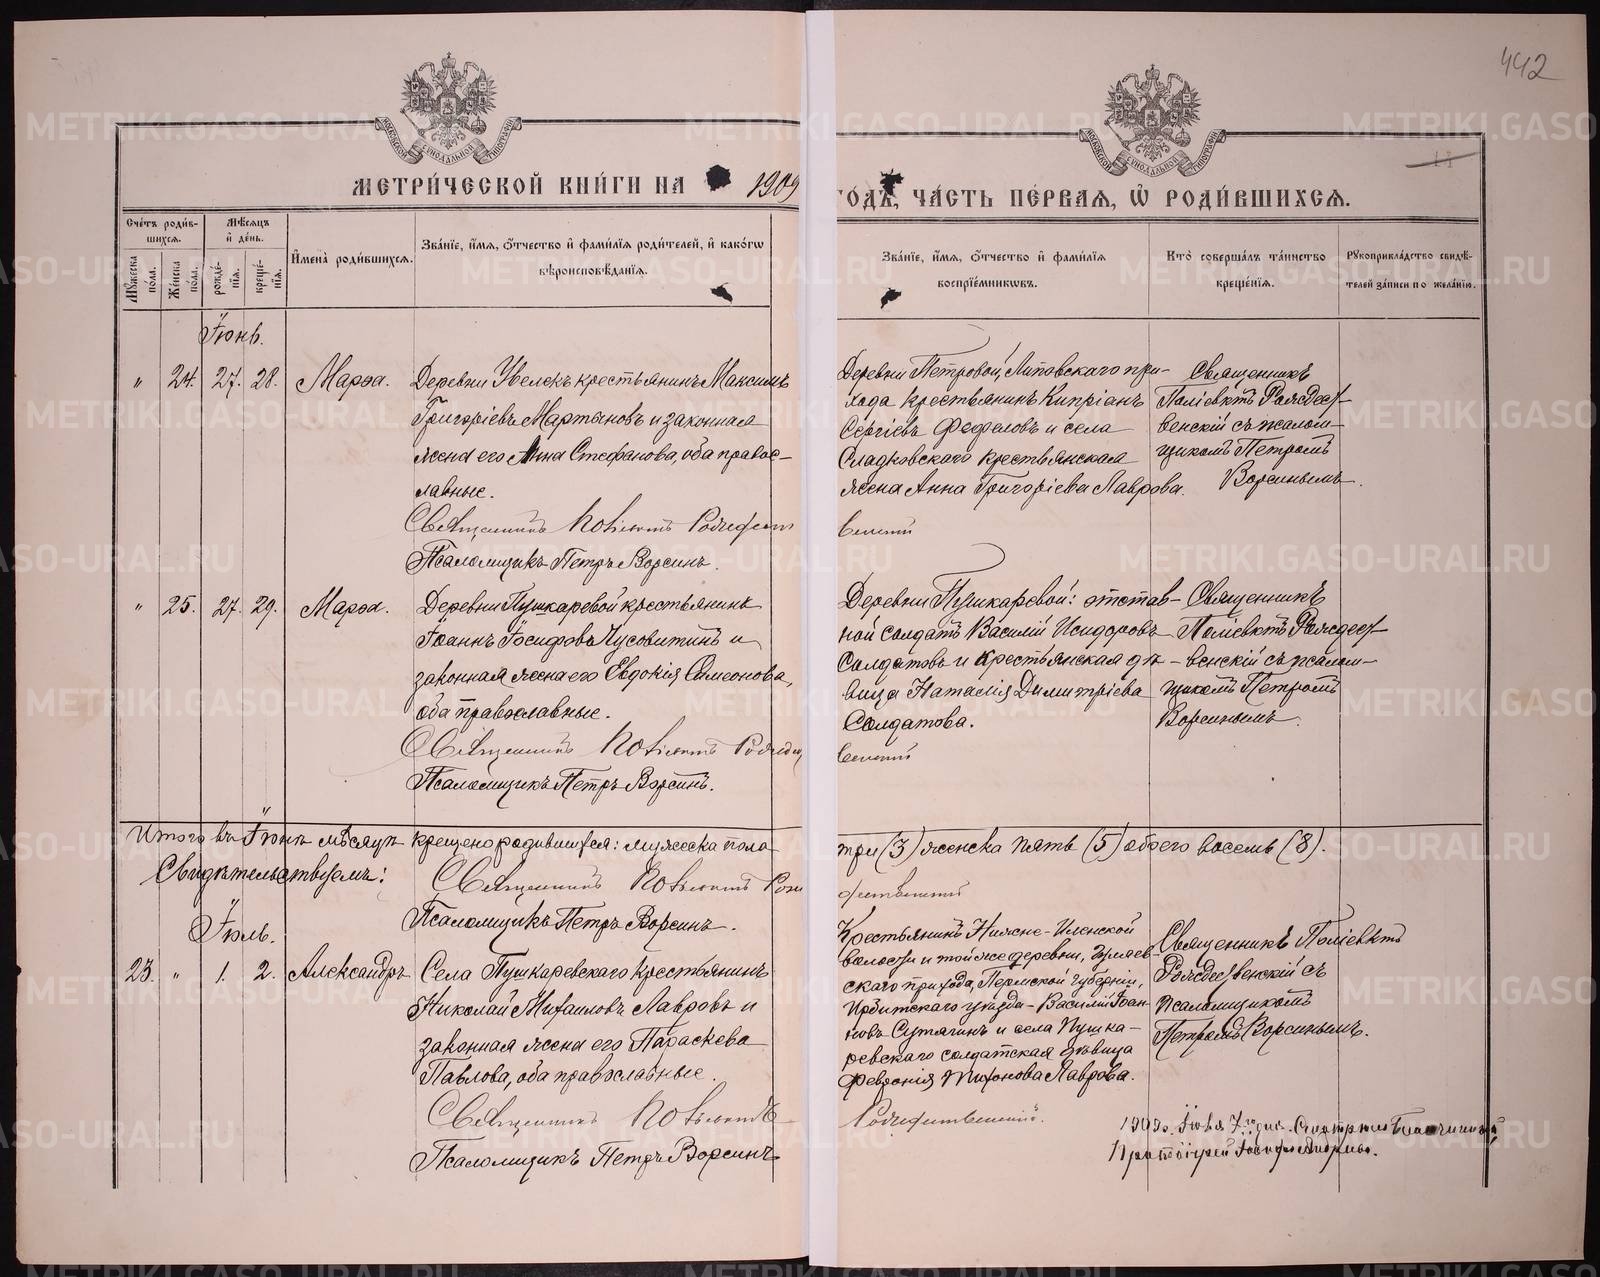 442
МОСКОВСКОЙ СѴНОДАЛЬНОЙ ТИПОГРАФІИ
МОСКОВСКОЙ СѴНОДАЛЬНОЙ ТИПОГРАФІИ
МЕТРИ́ЧЕСКОЙ КНИ́ГИ НА 1909
ГОДЪ, ЧА́СТЬ ПЕ́РВАЯ, Ѽ РОДИ́ВШИХСЯ.
Сче́тъ роди́вшихся.
Му́жеска по́ла.
Же́нска по́ла.
Мѣ́сяцъ и҆ де́нь.
рожде́нїя.
креще́нїя.
И҆мена̀ роди́вшихся.
Зва́нїе, и҆́мя, ѻ҆́тчество и҆ фами́лїя роди́телей, и҆ како́гѡ
вѣроисповѣ́данїя.
Зва́нїе, и҆́мя, ѻ҆́тчество и҆ фами́лїя
воспрїе́мникѡвъ.
Кто̀ соверша́лъ та́инство
креще́нїя.
Рꙋкоприкла́дство свидѣ́-
телей за́писи по жела́нїю.
Іюнь.
" 24. 27. 28. Марѳа.
Деревни Увелекъ крестьянинъ Максимъ
Григорьевъ Мартьяновъ и законная
жена его Анна Стефанова, оба правос-
лавные.
Священникъ Поліевктъ Рождест
Псаломщикъ Петръ Ворсинъ.
Деревни Петровой, Липовскаго при-
хода крестьянинъ Кипріанъ
Сергіевъ Фефеловъ и села
Сладковскаго крестьянская
жена Анна Григоріева Лаврова.
венскій
Священникъ
Поліевктъ Рождест-
венскій съ псалом-
щикомъ Петромъ
Ворсинымъ.
" 25. 27. 29. Марѳа.
Деревни Пушкаревой крестьянинъ
Іоаннъ Іосифовъ Чусовитинъ и
законная жена его Евдокія Симеонова,
оба православные.
Священникъ Поліевктъ Рождест
Псаломщикъ Петръ Ворсинъ.
Деревни Пушкаревой: отстав-
ной солдатъ Василій Исидоровъ
Солдатовъ и крестьянская дѣ-
вица Наталія Димитріева
Солдатова.
венскій
Священникъ
Поліевктъ Рождест-
венскій съ псалом-
щикомъ Петромъ
Ворсинымъ.
Итого въ Іюнѣ мѣсяцѣ крещено родившихся: мужеска пола
три (3) женска пять (5) обоего восемь (8).
Свидѣтельствуемъ: Священникъ Поліевктъ Рож
дественскій
Псаломщикъ Петръ Ворсинъ.
Іюль.
23. " 1. 2. Александръ
Села Пушкаревскаго крестьянинъ
Николай Михаиловъ Лавровъ и
законная жена его Параскева
Павлова, оба православные.
Священникъ Поліевктъ
Псаломщикъ Петръ Ворсинъ
Крестьянинъ Нижне-Иленской
волости и той же деревни,
скаго прихода, Пермской губерніи,
Ирбитскаго уѣзда - Василій Іоан-
новъ Сутягинъ и села Пушка-
ревскаго солдатская дѣвица
Февронія Тихонова Лаврова.
Рождественскій.
Священникъ Поліевктъ
Рождественскій съ
псаломщикомъ
Петромъ Ворсинымъ.
1909 г. Іюля 7 дня. Смотрѣлъ Благочинный,
Протоіерей Іосифъ